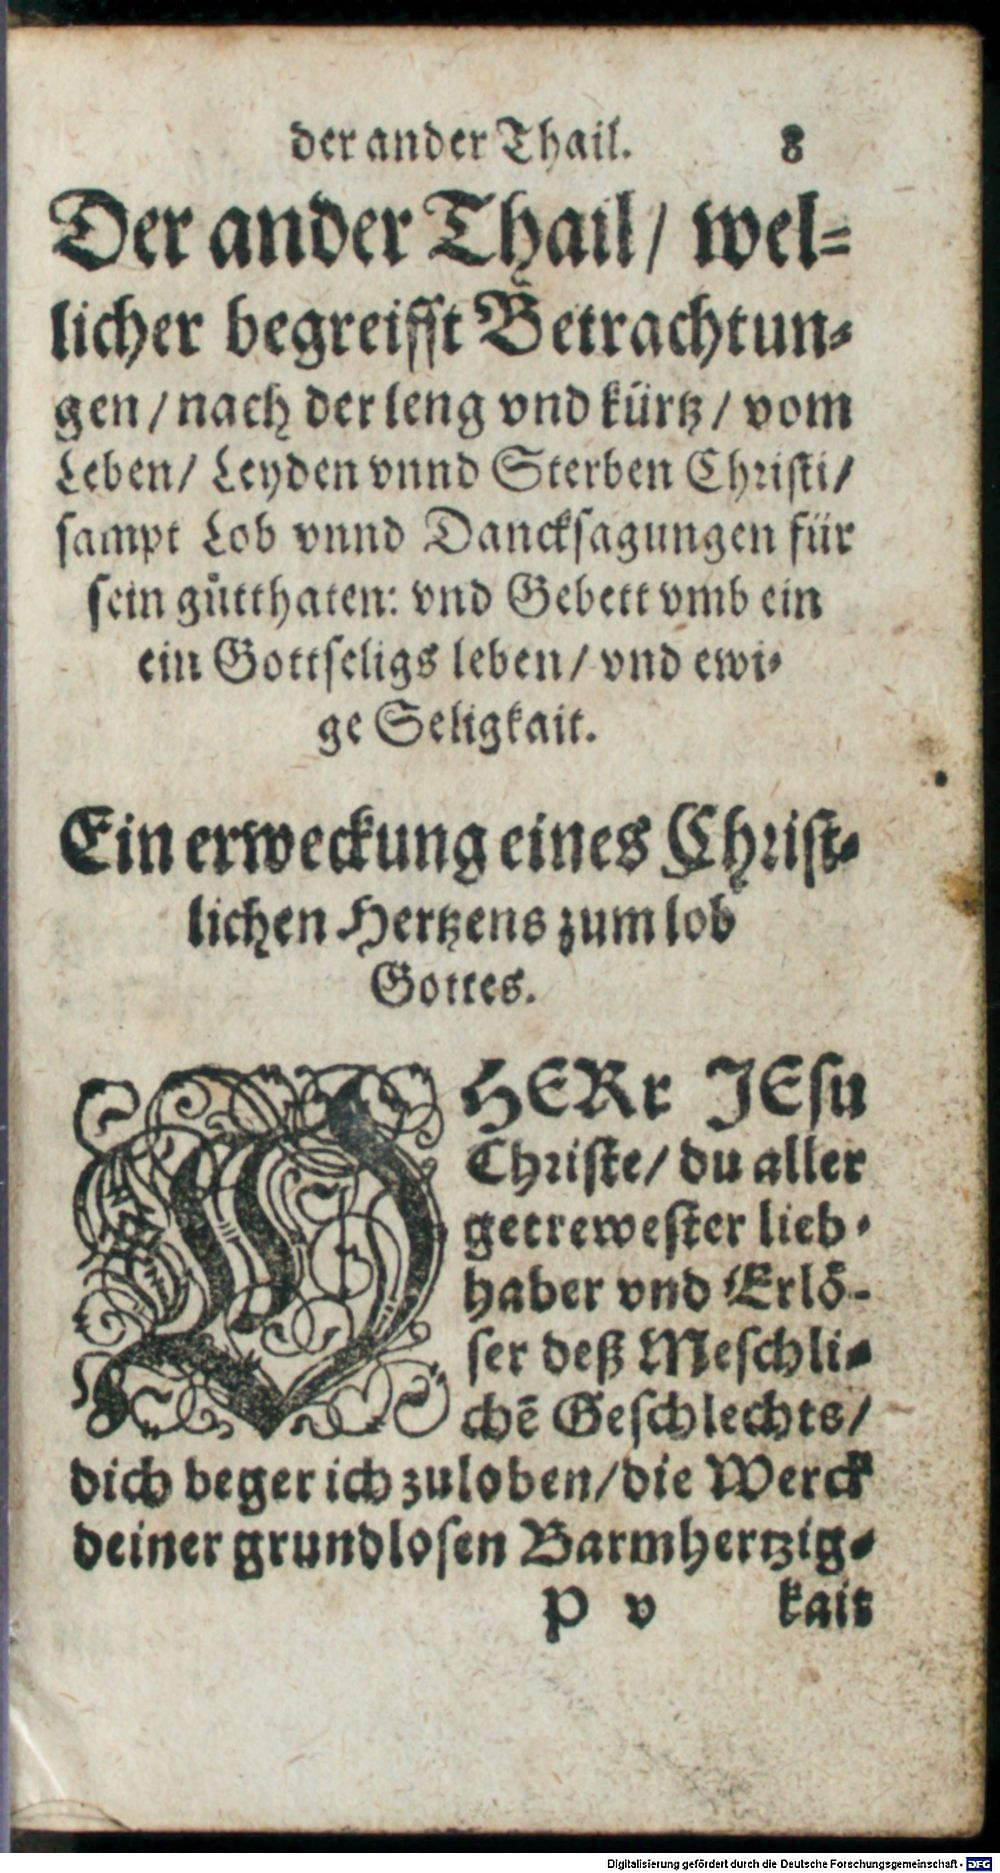 der ander Thail. 8
Der ander Thail/ wel-
licher begreifft Betrachtun-
gen/ nach der leng vnd kürtz/ vom
Leben/ Leyden vnnd Sterben Christi/
sampt Lob vnnd Dancksagungen für
sein gůtthaten: vnd Gebett vmb ein
ein Gottseligs leben/ vnd ewi-
ge Seligkait.
Ein erweckung eines Christ-
lichen Hertzens zum lob
Gottes.
O HERr JEsu
Christe/ du aller
getrewester lieb-
haber vnd Erlö-
ser deß Meschli-
chē Geschlechts/
dich beger ich zuloben/ die Werck
deiner grundlosen Barmhertzig-
P v kait
Digitalisierung gefördert durch die Deutsche Forschungsgemeinschaft - DFG